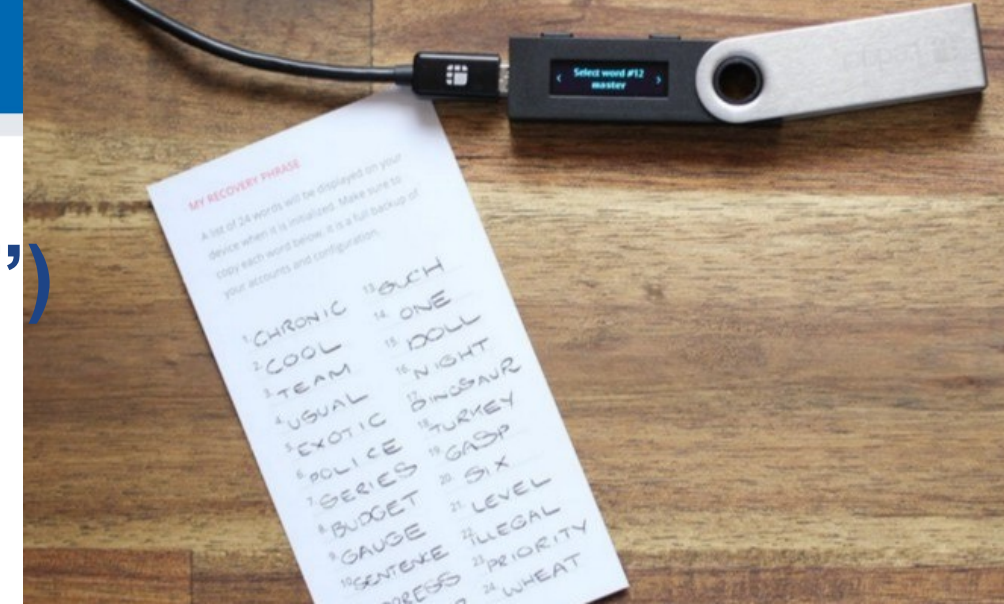 ’)
Select word #12
master
MY RECOVERY PHRASE
A list of 24 words will be displayed on your
device when it is initialized. Make sure to
copy each word below; it is a full backup of
your accounts and configuration.
1. CHRONIC
2. COOL
3. TEAM
4. USUAL
5. EXOTIC
6. POLICE
7. SERIES
8. BUDGET
9. GAUGE
10. SENTENCE
13. SUCH
14. ONE
15. DOLL
16. NIGHT
17. DINOSAUR
18. TURKEY
19. GASP
20. SIX
21. LEVEL
22. ILLEGAL
23. PRIORITY
24. WHEAT